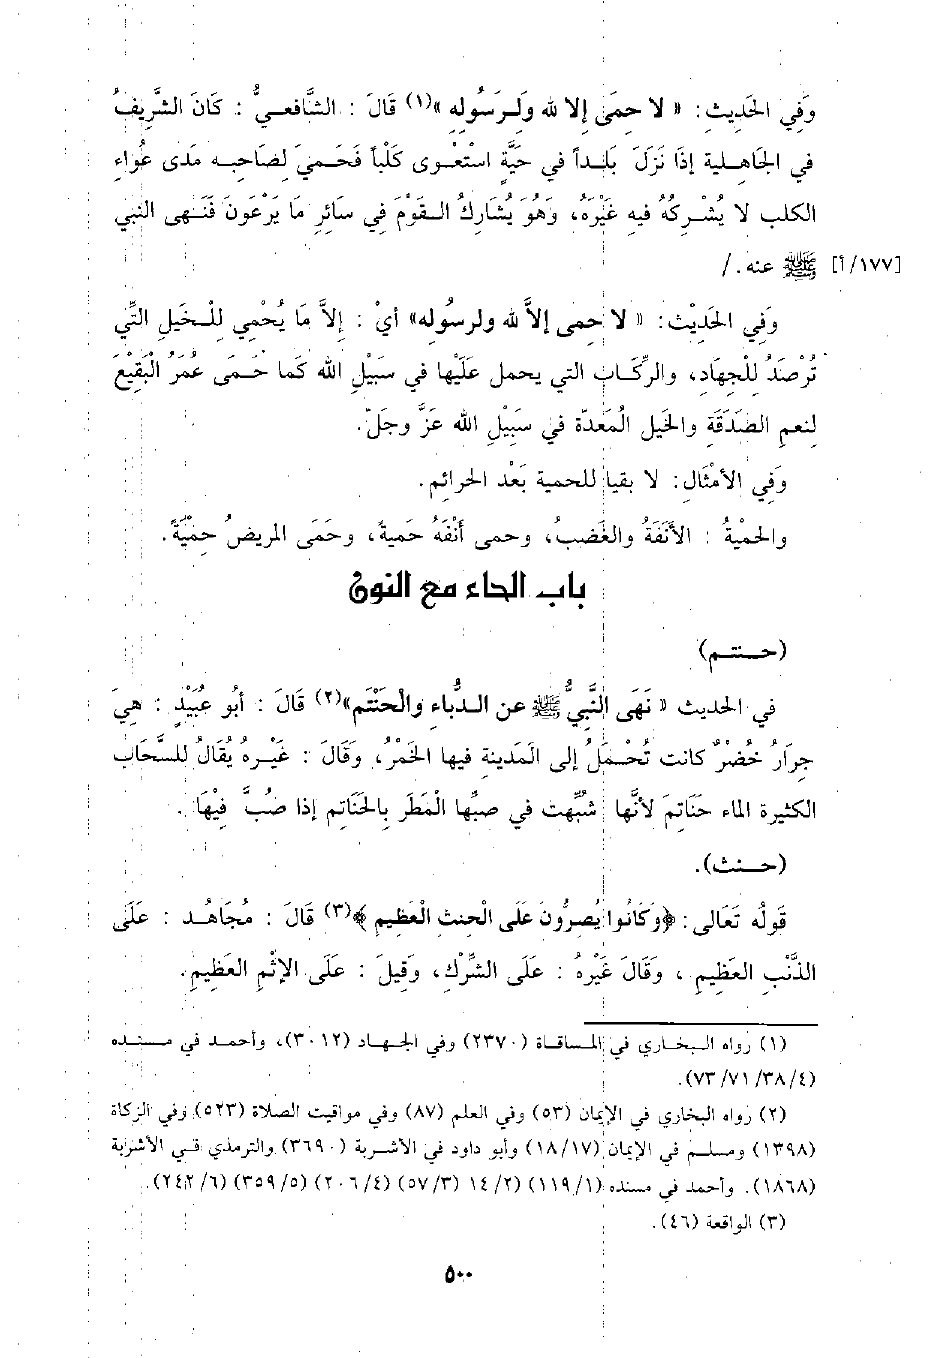 وَفِي الحَدِيثِ: « لا حِمَى إلا لله وَلِرَسُولِه »(١) قَالَ : الشَّافعيُّ : كَانَ الشَّرِيفُ
في الجَاهلية إذَا نَزَلَ بَلداً في حَيَّةِ اسْتَعْوى كَلْباً فَحَميَ لِصَاحبه مَدى عُوَاءِ
الكلب لا يُشْركُهُ فيه غَيْرَهُ، وَهُوَ يُشَاركُ القَوْمَ فِي سَائِرِ مَا يَرْعَونَ فَنَهى النبي
[١٧٧/أ] ﷺ عنه. /
وَفِي الحَدِيْث: « لا حمى إلاَّ لله ولرسُوله» أيْ : إلاَّ مَا يُحْمي للْخَيلِ التِّي
تُرْصَدُ للْجِهَادِ، والرِّكَابِ التي يحمل عَلَيْها في سَبِيْلِ الله كَما حَمَى عُمَرُ الْبَقِيْعَ
لِنعمِ الصَدَقَةِ والخَيل الْمُعَدّة في سَبِيْلِ الله عَزَّ وجَلّ.
وَفِي الأمْثَال: لا بقيا للحمية بَعْد الحرائم.
والحَمْيةُ : الأنَفَةُ والغَضبُ، وحمى أنْفَهُ حَميةً، وحَمَى المريضُ حِمْيَةً.
باب الحاء مع النون
(حنتم)
في الحديث « نَهَى النَّبيُّ ﷺ عن الدُّباء والْحَنْتَم»(٢) قَالَ : أبُو عُبَيْدٍ : هِيَ
جِرَارُ خُضْرٌ كانت تُحْمَلُ إلى الْمَدينة فيها الخَمْرُ، وقَالَ : غَيْره يُقَالُ للسَّحَاب
الكثيرة الماء حَنَاتِمَ لأنَّها شُبِّهت في صبِّها الْمَطَر بِالحَنَاتِم إذا صُبَّ فِيْهَا .
(حنث).
قَولُه تَعَالى: ﴿وَكَانُوا يُصِرُّونَ عَلَى الْحِنثِ الْعَظِيمِ﴾(٣) قَالَ : مُجَاهُد : عَلَى
الذَّنْبِ العَظِيمِ ، وَقَالَ غَيْرهُ : عَلَى الشِّرْكِ، وَقِيلَ : عَلَى الإثْمِ العَظِيمِ.
(١) رواه البخاري في المساقاة (٢٣٧٠) وفي الجهاد (٣٠١٢)، وأحمد في مسنده
(٤/ ٣٨/ ٧١/ ٧٣).
(٢) رواه البخاري في الإيمان (٥٣) وفي العلم (٨٧) وفي مواقيت الصلاة (٥٢٣) وفي الزكاة
(١٣٩٨) ومسلم في الإيمان (١٨/١٧) وأبو داود في الأشربة (٣٦٩٠) والترمذي في الأشربة
(١٨٦٨). وأحمد في مسنده (١١٩/١) (٢/ ١٤ (٥٧/٣) (٢٠٦/٤) (٣٥٩/٥) (٢٤٢/٦).
(٣) الواقعة (٤٦).
٥٠٠